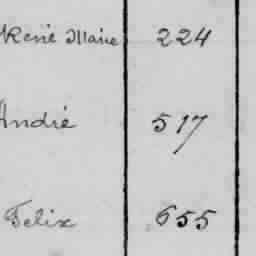 René Marie 224
André 517
Felix 655